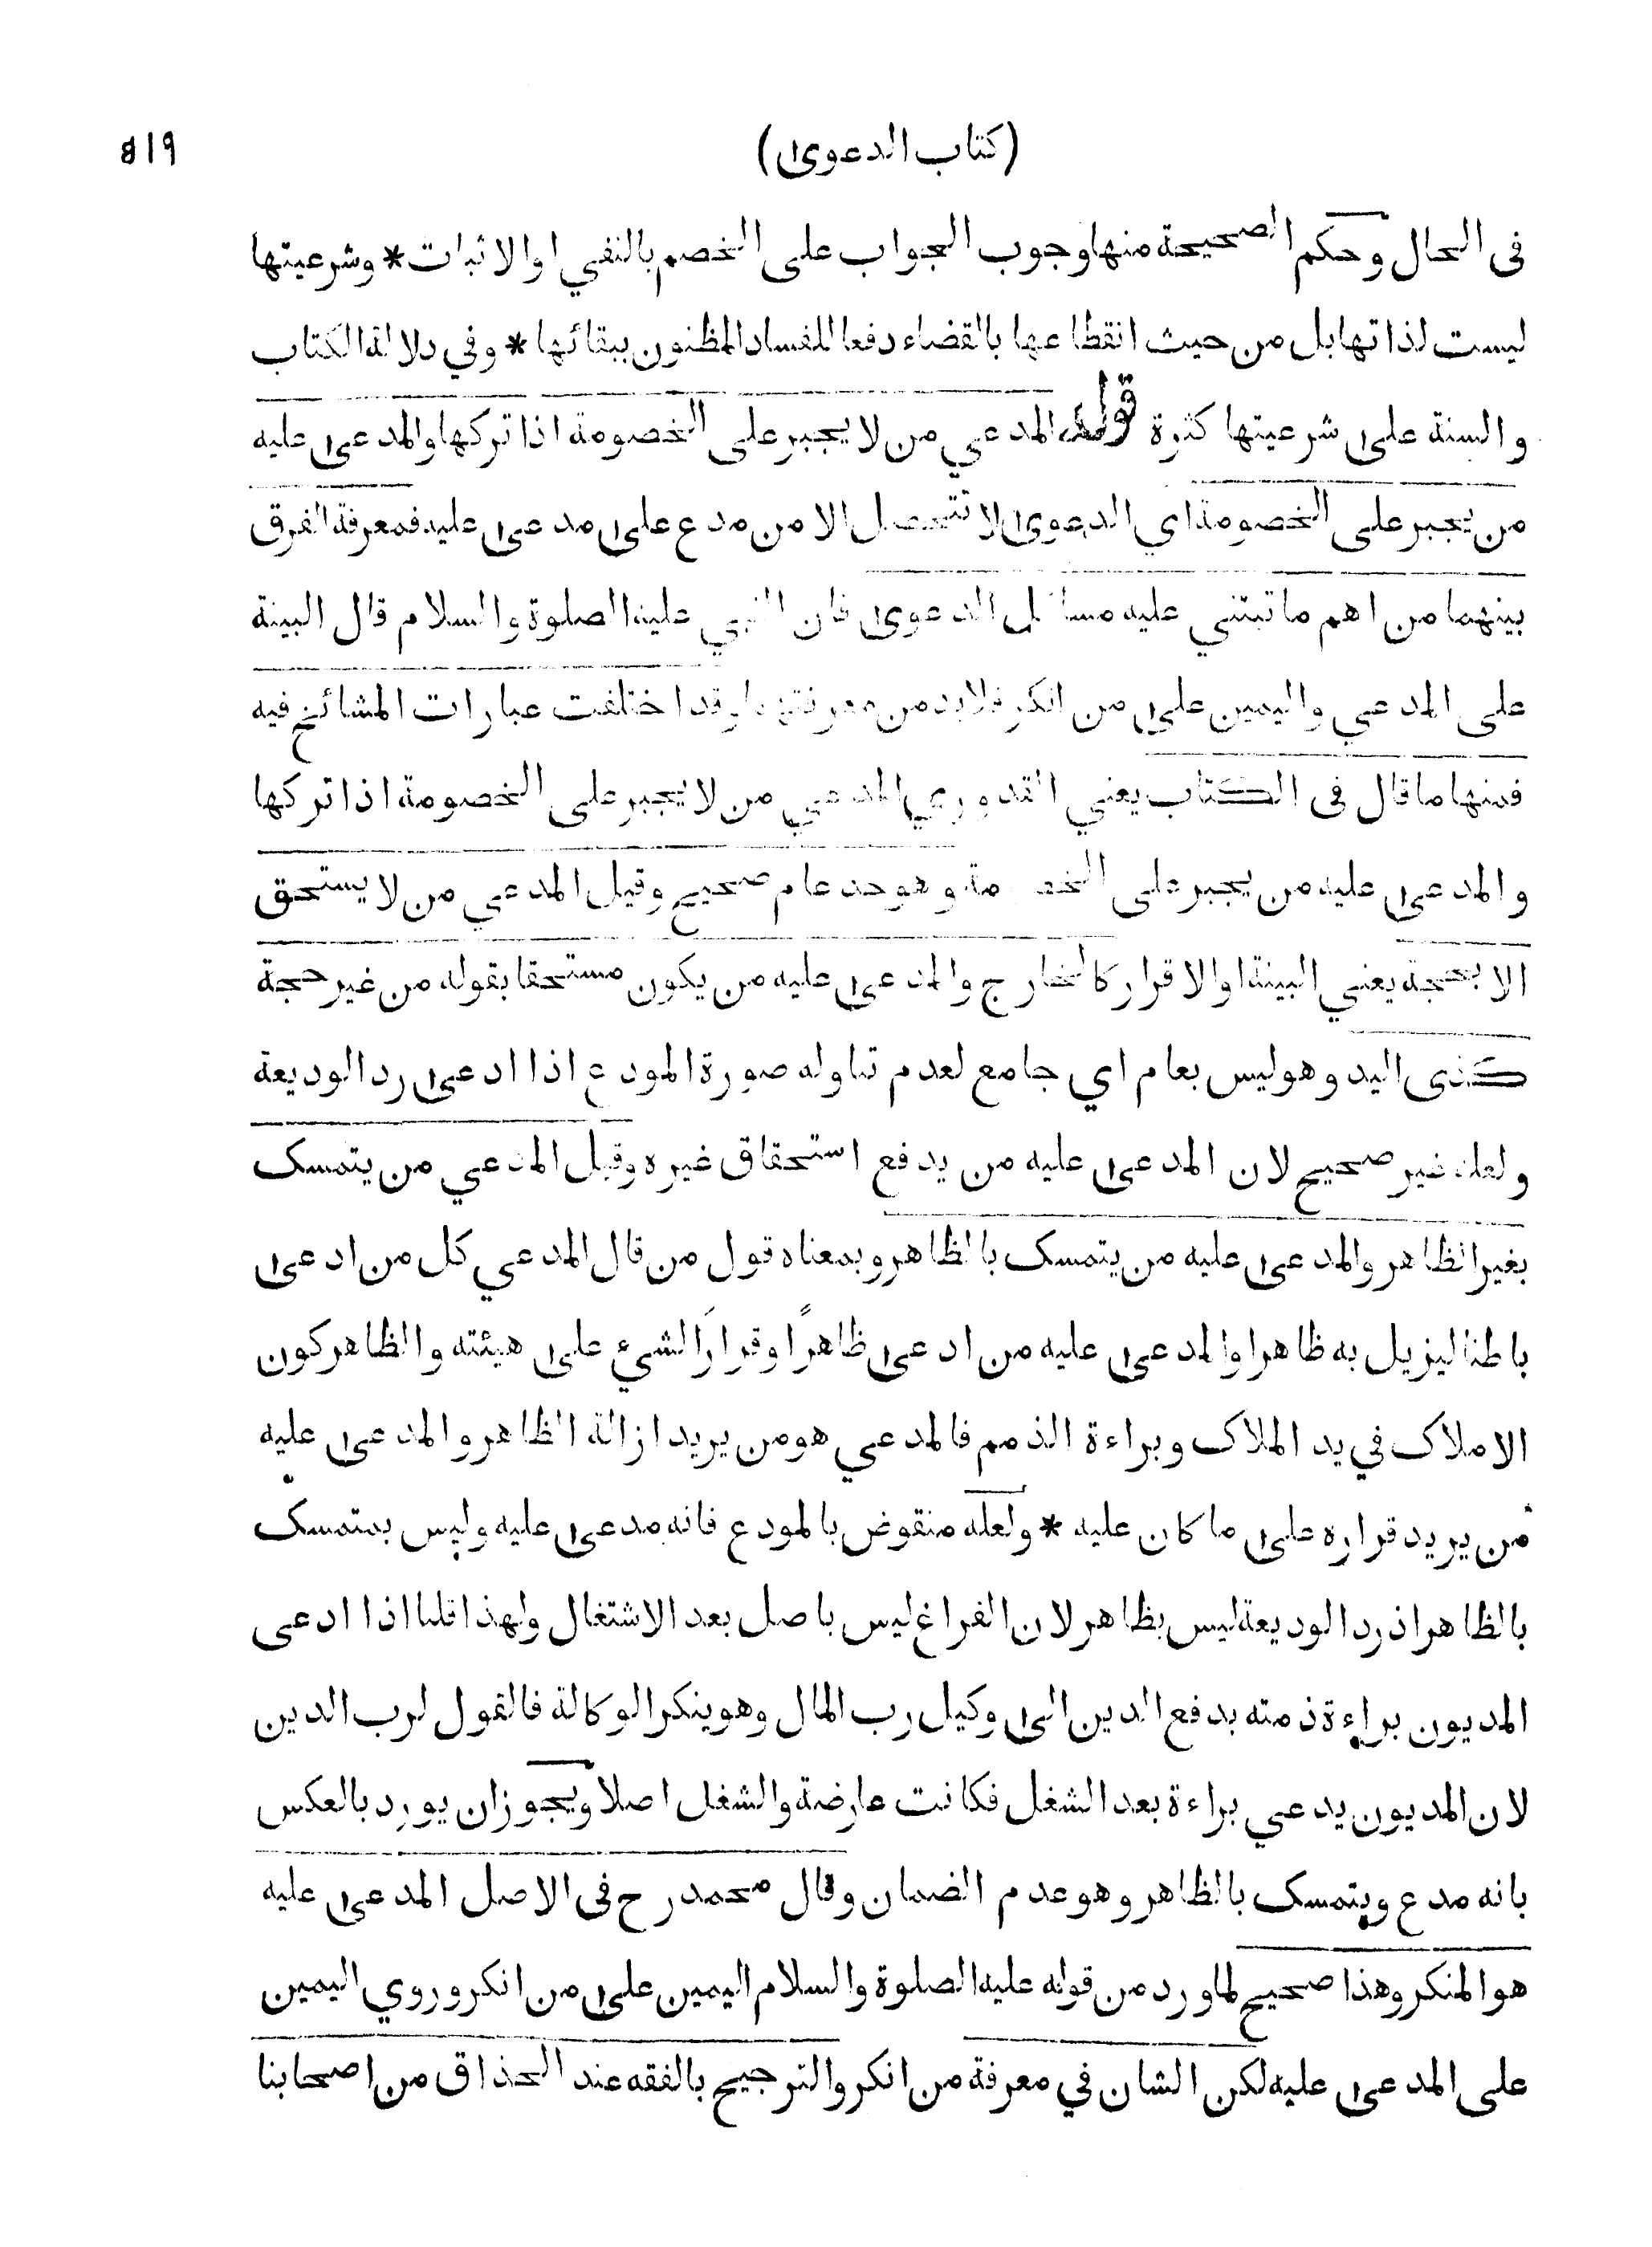 (كتاب الدعوى)
في الحال وحكم الصحيحة منها وجوب الجواب على الخصم بالنفي او الاثبات * وشرعيتها
ليست لذاتها بل من حيث انقطاعها بالقضاء دفعا للفساد المظنون ببقائها * وفي دلالة الكتاب
والسنة على شرعيتها كثرة قوله المدعي من لا يجبر على الخصومة اذا تركها والمدعى عليه
من يجبر على الخصومة اي الدعوى لا تتحصل الا من مدع على مدعى عليه فمعرفة الفرق
بينهما من اهم ما تبتني عليه مسائل الدعوى فان النبي عليه الصلوة والسلام قال البينة
على المدعي واليمين على من انكر فلا بد من معرفتهما وقد اختلفت عبارات المشائخ فيه
فمنها ما قال في الكتاب يعني القدوري المدعي من لا يجبر على الخصومة اذا تركها
والمدعى عليه من يجبر على الخصومة وهو حد عام صحيح وقيل المدعي من لا يستحق
الا بحجة يعني البينة او الاقرار كالخارج والمدعى عليه من يكون مستحقا بقوله من غير حجة
كذى اليد وهو ليس بعام اي جامع لعدم تناوله صورة المودع اذا ادعى رد الوديعة
ولعله غير صحيح لان المدعى عليه من يدفع استحقاق غيره وقيل المدعي من يتمسك
بغير الظاهر والمدعى عليه من يتمسك بالظاهر وبمعناه قول من قال المدعي كل من ادعى
باطنا ليزيل به ظاهرا والمدعى عليه من ادعى ظاهرًا وقرارَ الشيء على هيئته والظاهر كون
الاملاك في يد الملاك وبراءة الذمم فالمدعي هو من يريد ازالة الظاهر والمدعى عليه
من يريد قراره على ما كان عليه * ولعله منقوض بالمودع فانه مدعى عليه وليس بمتمسك
بالظاهر اذ رد الوديعة ليس بظاهر لان الفراغ ليس باصل بعد الاشتغال ولهذا قلنا اذا ادعى
المديون براءة ذمته بدفع الدين الى وكيل رب المال وهو ينكر الوكالة فالقول لرب الدين
لان المديون يدعي براءة بعد الشغل فكانت عارضة والشغل اصلا ويجوز ان يورد بالعكس
بانه مدع ويتمسك بالظاهر وهو عدم الضمان وقال محمد رح في الاصل المدعى عليه
هو المنكر وهذا صحيح لما ورد من قوله عليه الصلوة والسلام اليمين على من انكر وروي اليمين
على المدعى عليه لكن الشان في معرفة من انكر والترجيح بالفقه عند الحذاق من اصحابنا